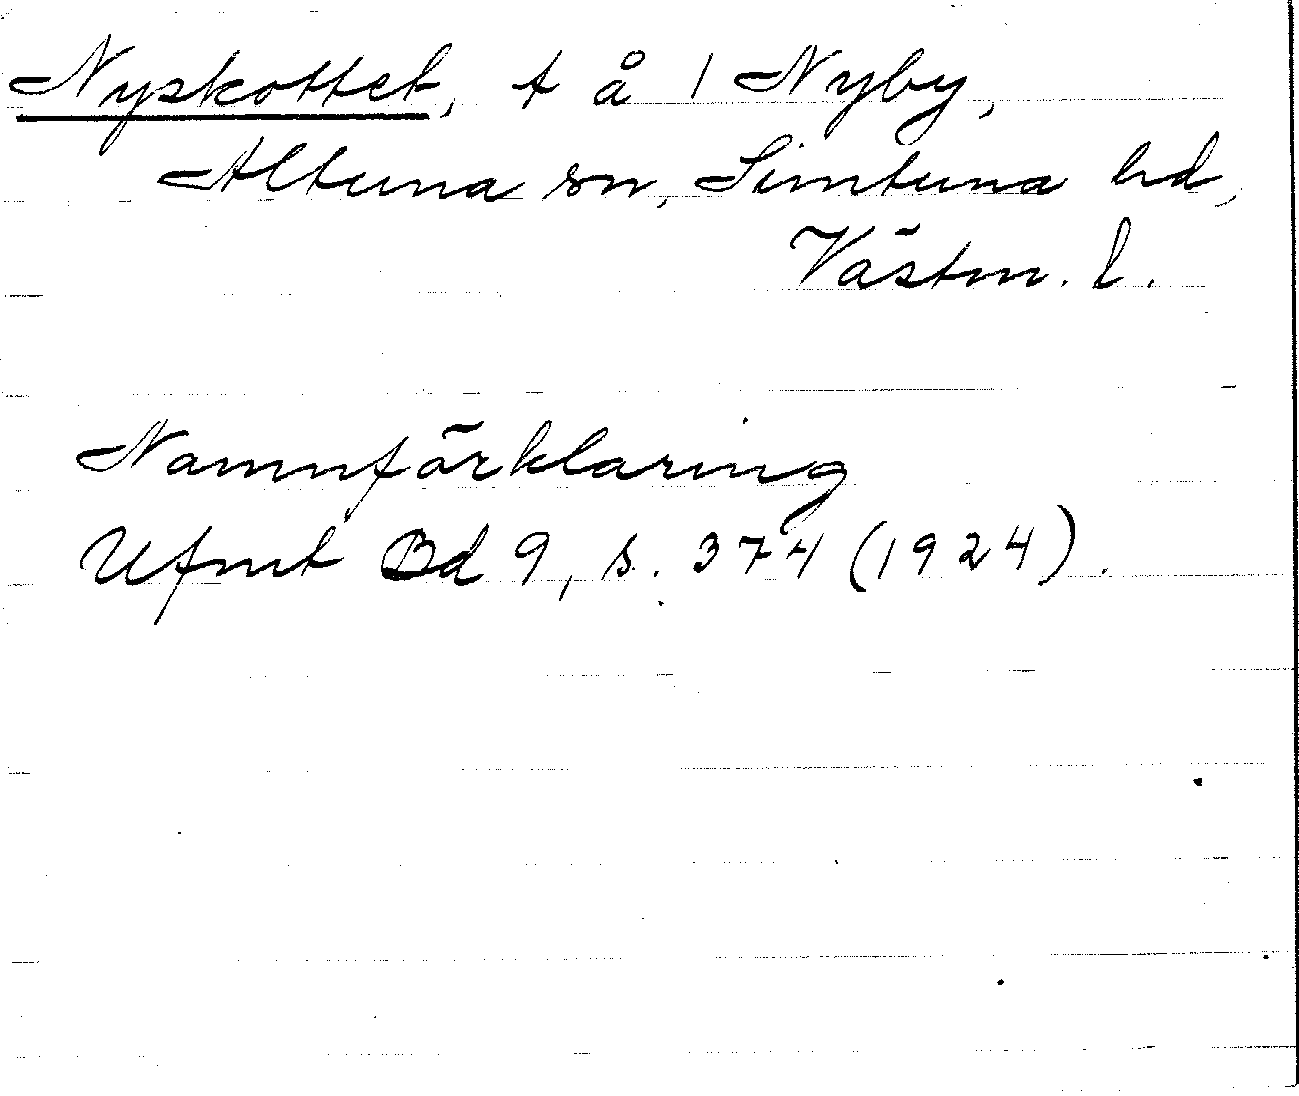 Nyskottet, t å 1 Nyby,
Altuna sn, Simtuna hd,
Västm. l.
Namnförklaring
Ufmt Bd 9, s. 374 (1924).